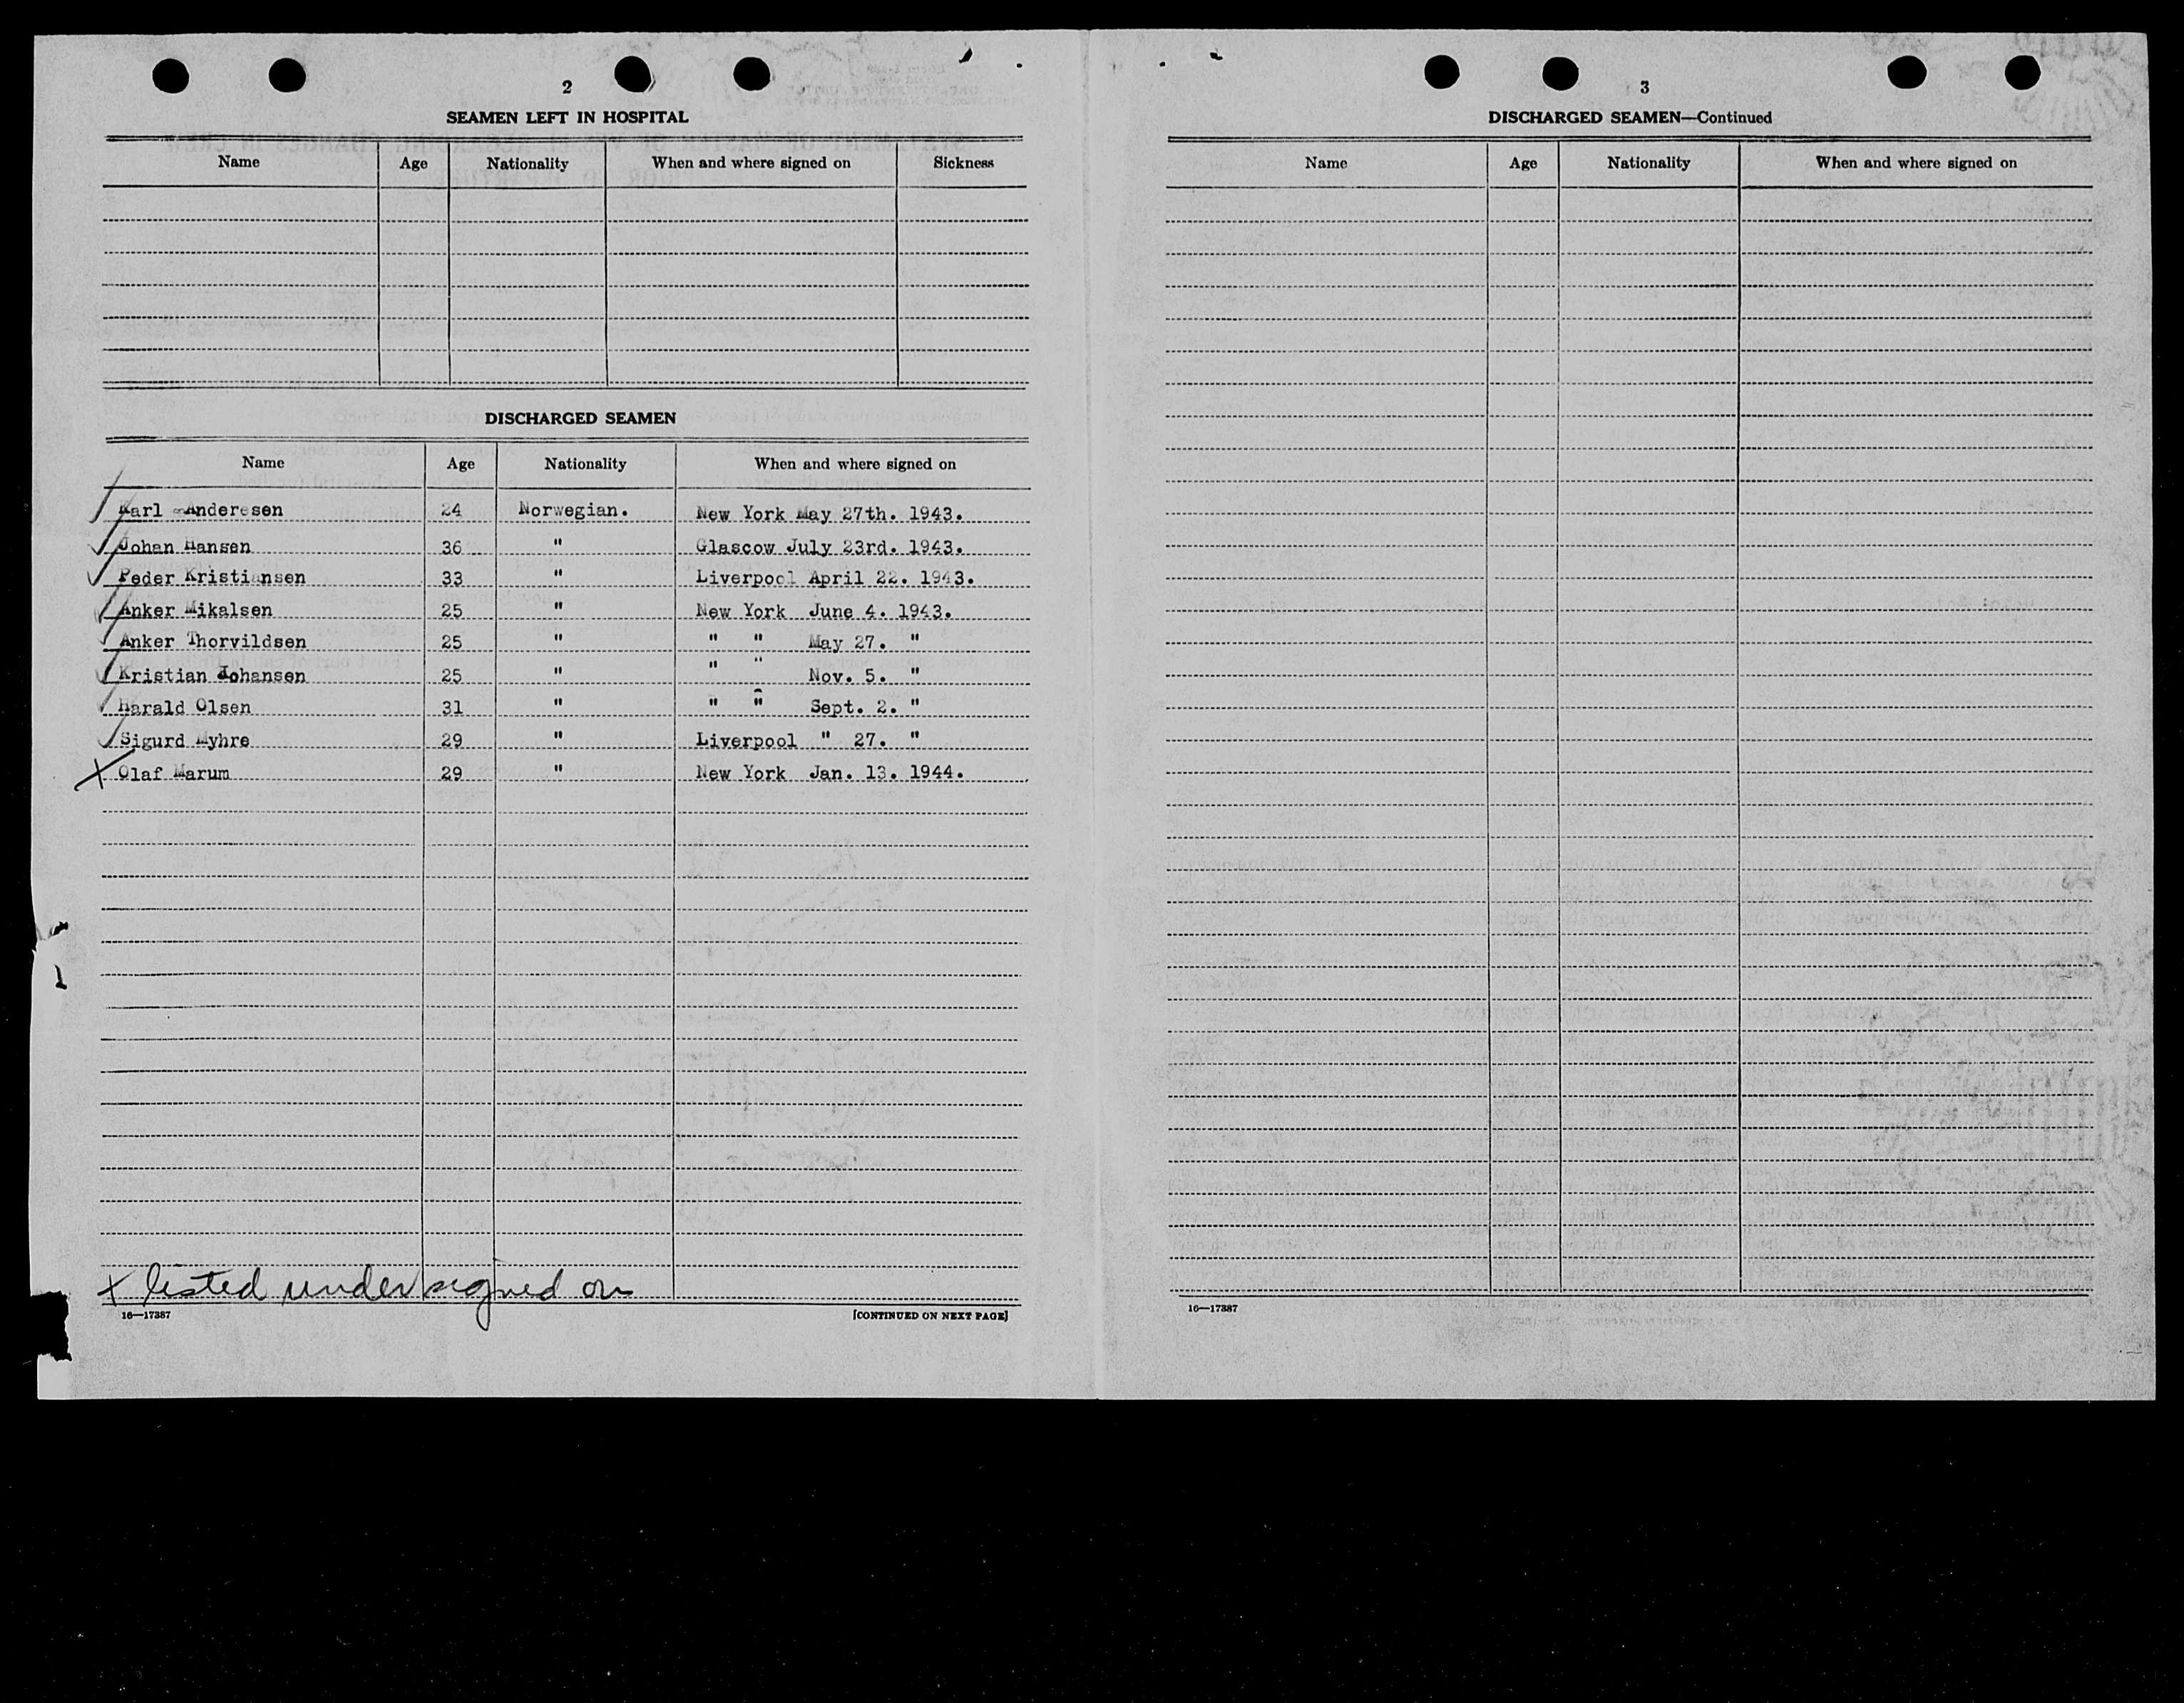 2
SEAMEN LEFT IN HOSPITAL
Name Age Nationality When and where signed on Sickness
DISCHARGED SEAMEN
Name Age Nationality When and where signed on
Karl Anderesen 24 Norwegian. New York May 27th. 1943.
Johan Hansen 36 " Glascow July 23rd. 1943.
Peder Kristiansen 33 " Liverpool April 22. 1943.
Anker Mikalsen 25 " New York June 4. 1943.
Anker Thorvildsen 25 " " " May 27. "
Kristian Johansen 25 " " " Nov. 5. "
Harald Olsen 31 " " " Sept. 2. "
Sigurd Myhre 29 " Liverpool " 27. "
X Olaf Marum 29 " New York Jan. 13. 1944.
X listed under signed on
16—17387 [CONTINUED ON NEXT PAGE]
3
DISCHARGED SEAMEN—Continued
Name Age Nationality When and where signed on
16—17387